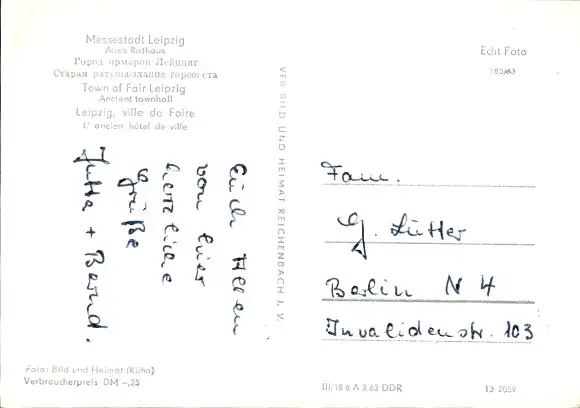 Messestadt Leipzig
Altes Rathaus
Город ярмарок Лейпциг
Старая ратуша/здание горсовета
Town of Fair Leipzig
Ancient townhall
Leipzig, ville de Foire
L' ancien hôtel de ville
Echt Foto
185/63
VEB BILD UND HEIMAT REICHENBACH I. V.
Euch Allen
von hier
herzliche
Grüße
Jutta + Bernd.
Fam.
G. Lütter
Berlin N 4
Invalidenstr. 103
Foto: Bild und Heimat (Kühn)
Verbraucherpreis DM -,25
III/18 6 A 3.63 DDR
13 2059